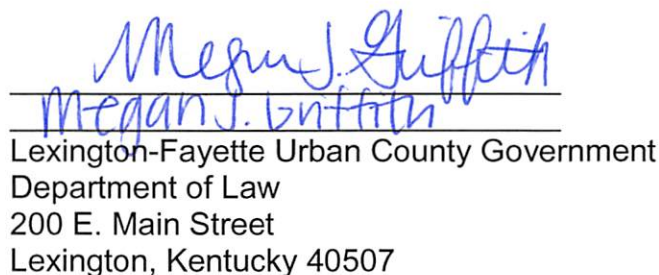 Megan J. Griffith
Megan J. Griffith
Lexington-Fayette Urban County Government
Department of Law
200 E. Main Street
Lexington, Kentucky 40507